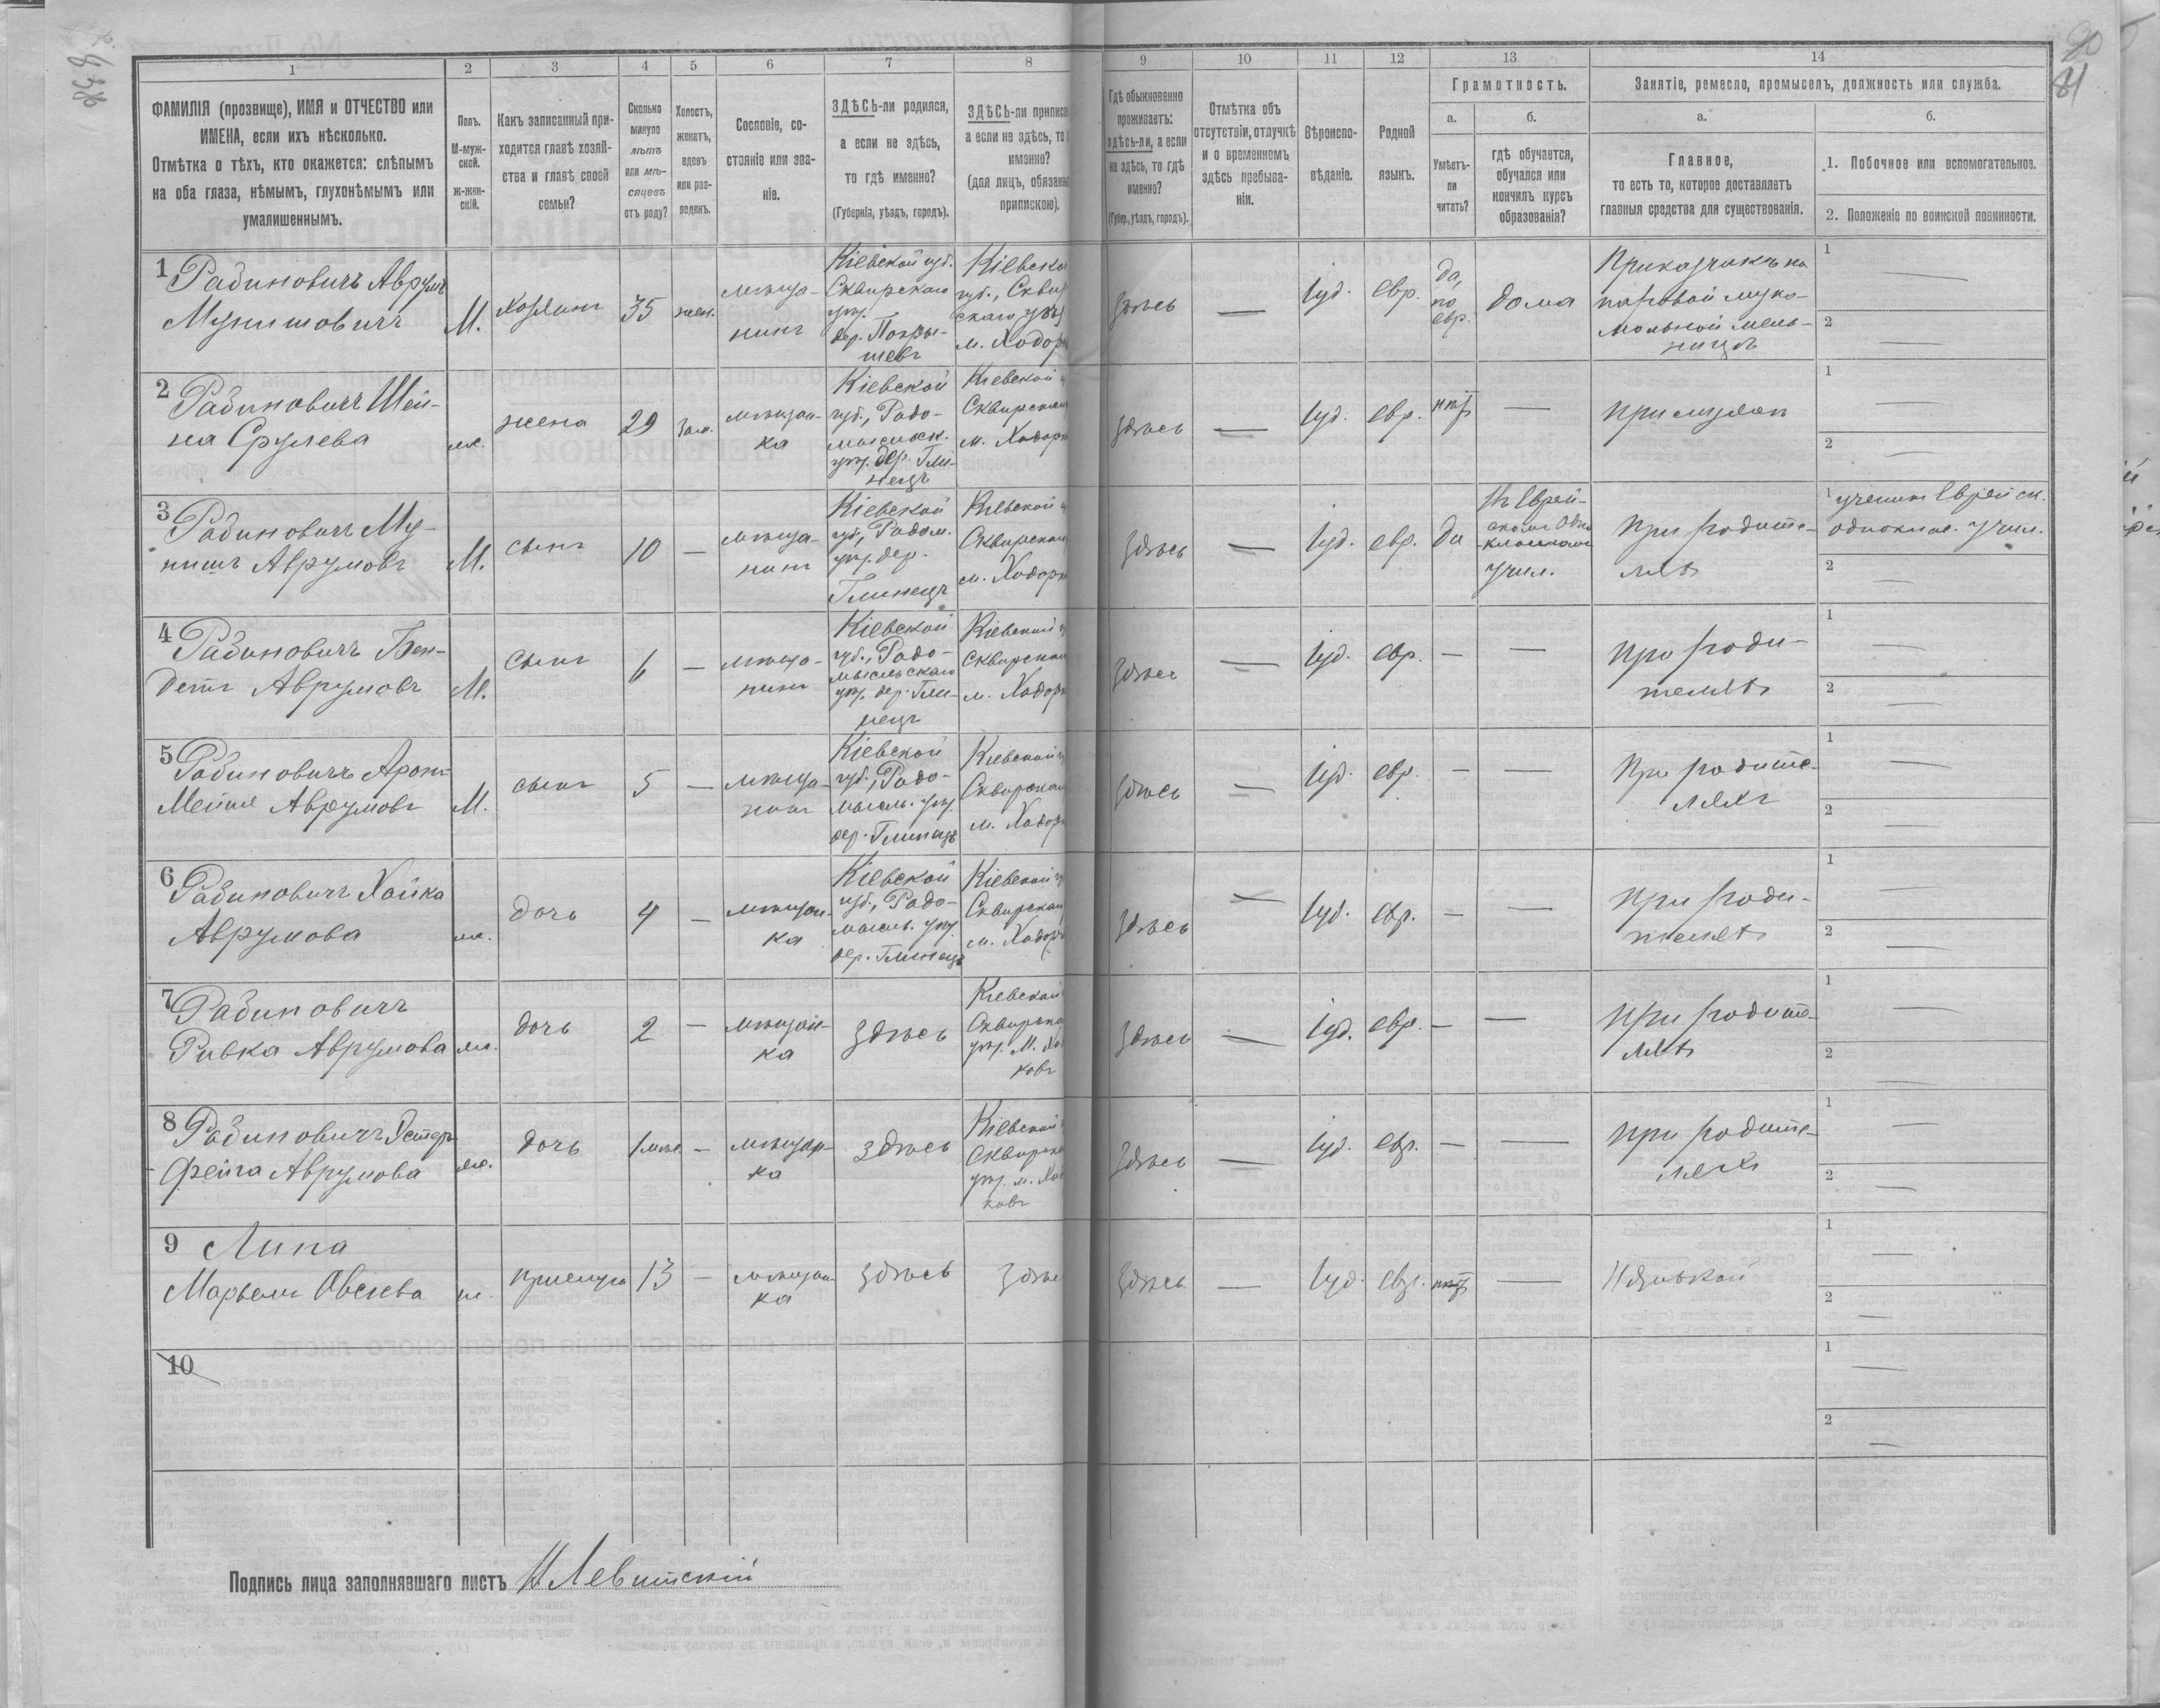 1 2 3 4 5 6 7 8 9 10 11 12 13 14
ФАМИЛІЯ (прозвище), ИМЯ и ОТЧЕСТВО или
ИМЕНА, если ихъ нѣсколько.
Отмѣтка о тѣхъ, кто окажется: слѣпымъ
на оба глаза, нѣмымъ, глухонѣмымъ или
умалишеннымъ.
Полъ.
М-муж-
ской.
ж-жен-
скій.
Какъ записанный при-
ходится главѣ хозяй-
ства и главѣ своей
семьи?
Сколько
минуло
лѣтъ
или мѣ-
сяцевъ
отъ роду?
Холостъ,
женатъ,
вдовъ
или раз-
веденъ.
Сословіе, со-
стояніе или зва-
ніе.
ЗДѢСЬ-ли родился,
а если не здѣсь,
то гдѣ именно?
(Губернія, уѣздъ, городъ).
ЗДѢСЬ-ли приписа
а если не здѣсь, то
именно?
(для лицъ, обязанн
припискою).
Гдѣ обыкновенно
проживаетъ:
здѣсь-ли, а если
не здѣсь, то гдѣ
именно?
(Губер., уѣздъ, городъ).
Отмѣтка объ
отсутствіи, отлучкѣ
и о временномъ
здѣсь пребыва-
ніи.
Вѣроиспо-
вѣданіе.
Родной
языкъ.
Грамотность.
а.
Умѣетъ-
ли
читать?
б.
гдѣ обучается,
обучался или
кончилъ курсъ
образованія?
Занятіе, ремесло, промыселъ, должность или служба.
а.
Главное,
то есть то, которое доставляетъ
главныя средства для существованія.
б.
1. Побочное или вспомогательное.
2. Положеніе по воинской повинности.
1
Рабиновичъ Аврумъ
Мунишовичъ
М.
Хозяинъ
35
жен.
мѣща-
нинъ
Кіевской губ.
Сквирскаго
уѣз.
дер. Покры-
шевъ
Кіевско
губ., Сквир
скаго уѣз
м. Ходор
здѣсь
—
Іуд.
евр.
да,
по
евр.
дома
Приказчикъ на
паровой муко-
мольной мель-
ницѣ
1 —
2 —
2
Рабиновичъ Шей-
на Срулева
ж.
жена
29
зам.
мѣщан-
ка
Кіевской
губ., Радо-
мысльск.
уѣз. дер. Гли-
нецъ
Кіевской
Сквирскаго
м. Ходорк
здѣсь
—
Іуд.
евр.
нѣт
—
при мужѣ
1 —
2 —
3
Рабиновичъ Му-
нишъ Аврумовъ
М.
сынъ
10
—
мѣща-
нинъ
Кіевской
губ., Радом.
уѣз. дер.
Глинецъ
Кіевской
Сквирскаго
м. Ходорк
здѣсь
—
Іуд.
евр.
да
въ Еврей-
скомъ одно
классномъ
учил.
при родите-
ляхъ
1 ученик Еврейск.
одноклас. учил.
2 —
4
Рабиновичъ Бен-
детъ Аврумовъ
М.
сынъ
6
—
мѣща-
нинъ
Кіевской
губ., Радо-
мысльскаго
уѣз. дер. Гли-
нецъ
Кіевской
Сквирскаго
м. Ходорк
здѣсь
—
Іуд.
евр.
—
—
при роди-
теляхъ
1 —
2 —
5
Рабиновичъ Аронъ
Мейше Аврумовъ
М.
сынъ
5
—
мѣща-
нинъ
Кіевской
губ., Радо-
мысль. уѣз.
дер. Глинецъ
Кіевской
Сквирскаго
м. Ходорк
здѣсь
—
Іуд.
евр.
—
—
при родите-
ляхъ
1 —
2 —
6
Рабиновичъ Хайка
Аврумова
ж.
дочь
4
—
мѣщан-
ка
Кіевской
губ., Радо-
мысль. уѣз.
дер. Глинецъ
Кіевской
Сквирскаго
м. Ходорк
здѣсь
—
Іуд.
евр.
—
—
при роди-
теляхъ
1 —
2 —
7
Рабиновичъ
Ривка Аврумова
ж.
дочь
2
—
мѣщан-
ка
здѣсь
Кіевской
Сквирска
уѣз. м. Хо
ковъ
здѣсь
—
Іуд.
евр.
—
—
при родите-
ляхъ
1 —
2 —
8
Рабиновичъ Эстеръ
Фейга Аврумова
ж.
дочь
1 мѣс.
—
мѣщан-
ка
здѣсь
Кіевской
Сквирска
уѣз. м. Хо
ковъ
здѣсь
—
Іуд.
евр.
—
—
при родите-
ляхъ
1 —
2 —
9
Липа
Марьем Овсеева
ж.
прислуга
13
—
мѣщан-
ка
здѣсь
здѣс
здѣсь
—
Іуд.
евр.
нѣт
—
Нянькой
1 —
2 —
10
1 —
2 —
Подпись лица заполнявшаго листъ Н Левитскій